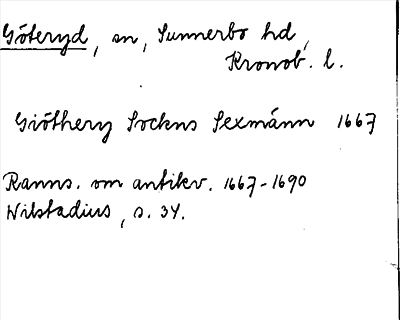 Göteryd, sn, Sunnerbo hd,
Kronob. l.
Giöthery Sockns Sexmänn 1667
Ranns. om antikv. 1667-1690
Wilstadius, s. 34.